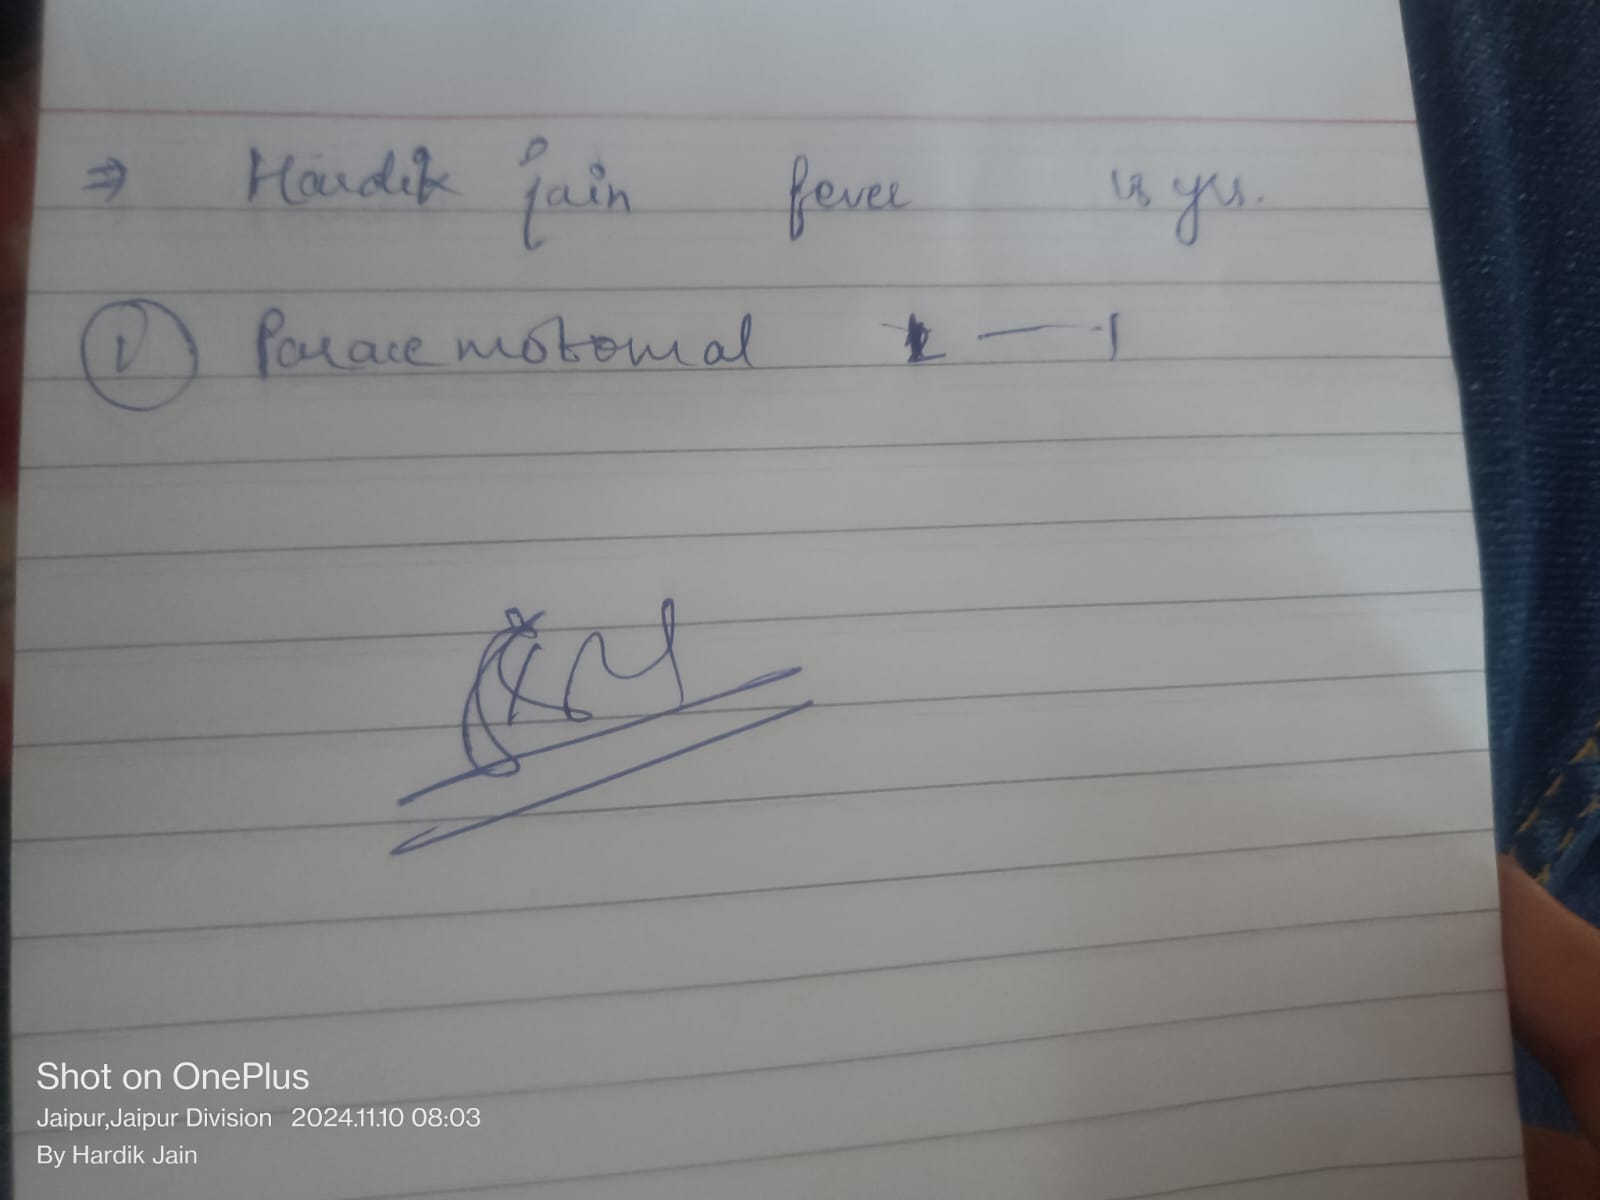 ⇒ Hardik Jain fever yrs.
① Paracemotomal 1
Shot on OnePlus
Jaipur,Jaipur Division 2024.11.10 08:03
By Hardik Jain